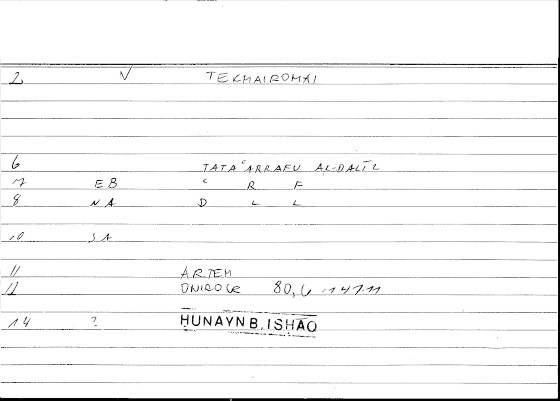 2 V TEKMAIROMAI
6 TATAʿARRAFU AL-DALĪL
7 EB ʿ R F
8 NA D L L
10 SA
11 ARTEM
12 ONIROCR 80,6
14 ? HUNAYN B. ISHĀQ